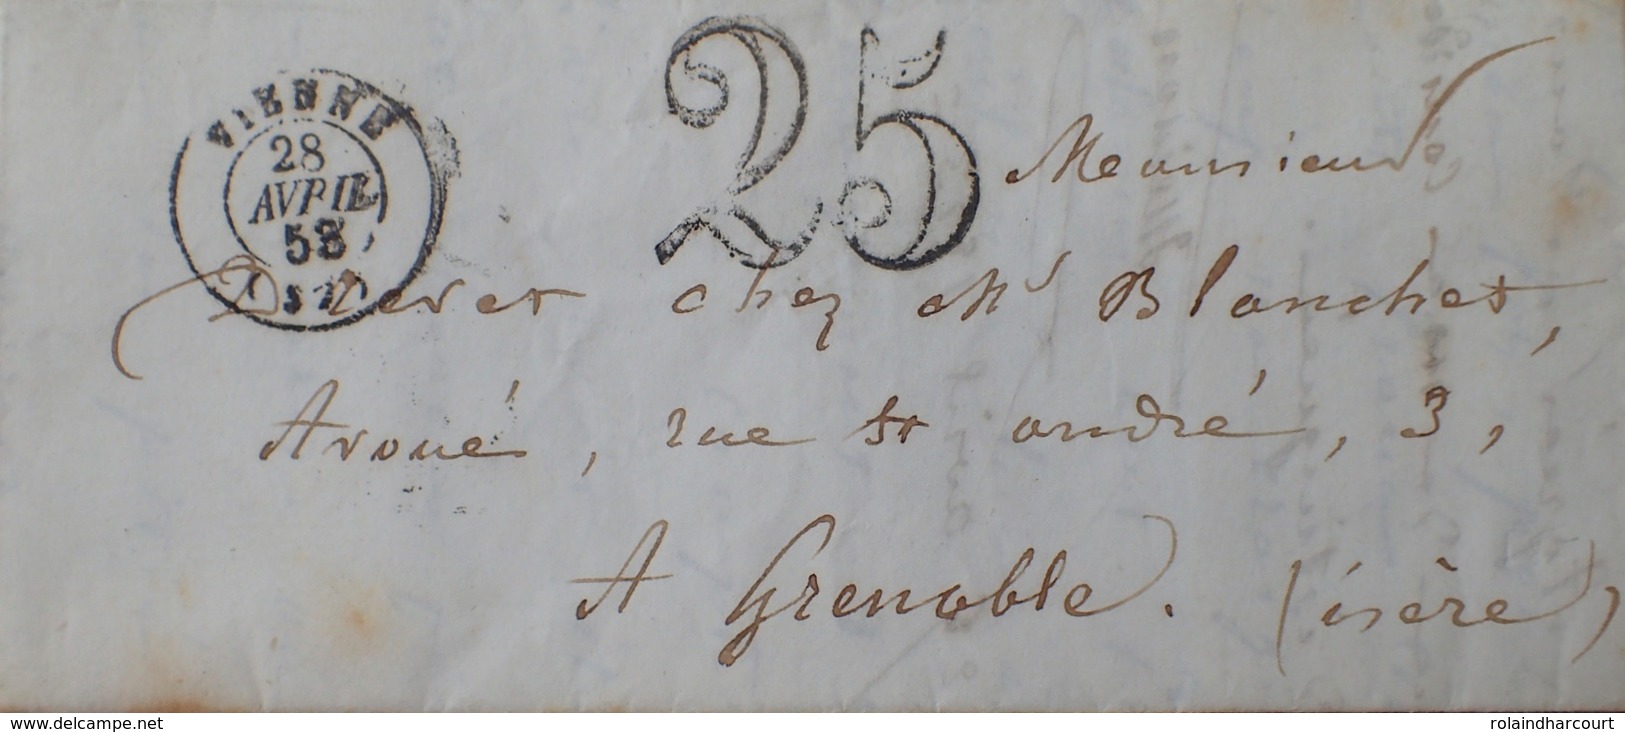 VIENNE
28
AVRIL
53
25
Monsieur
chez Mr Blanchet,
Avoué, rue St andré, 3,
A Grenoble. (isère)
www.delcampe.net
rolaindharcourt